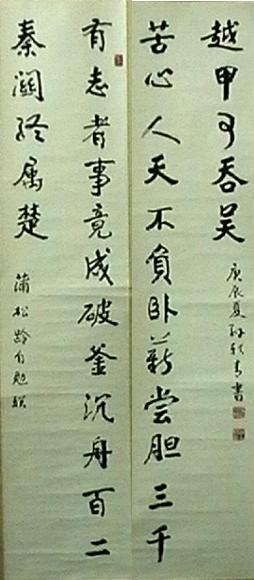 有志者事竟成破釜沉舟百二
秦關終属楚
蒲松齡自勉联
苦心人天不負卧薪嘗胆三千
越甲可吞吴
庚辰夏孫軼青書